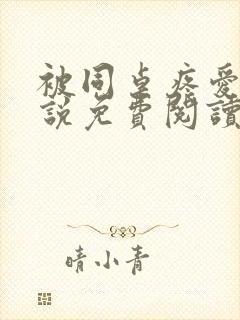 被同桌疼愛
說免費閱讀
晴小青